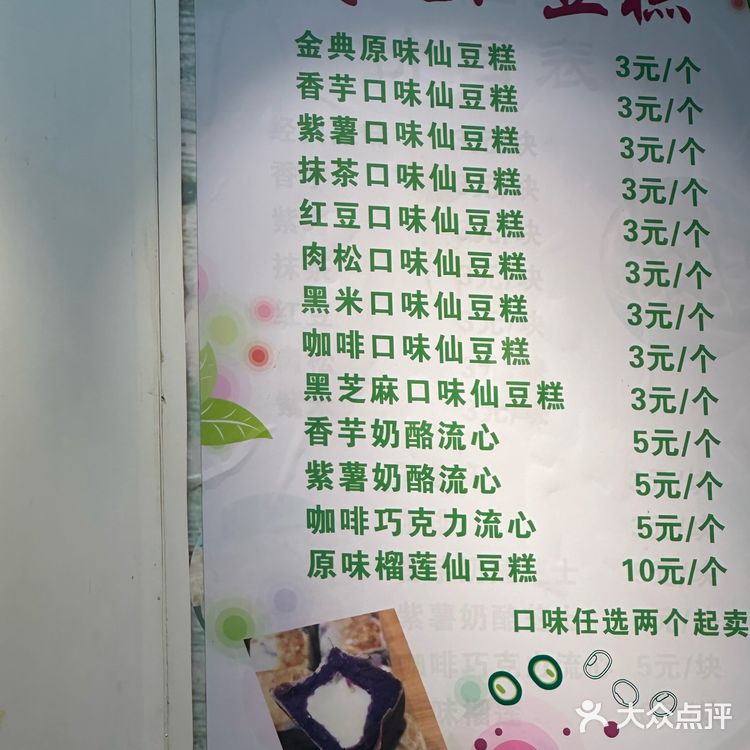 豆糕
金典原味仙豆糕 3元/个
香芋口味仙豆糕 3元/个
紫薯口味仙豆糕 3元/个
抹茶口味仙豆糕 3元/个
红豆口味仙豆糕 3元/个
肉松口味仙豆糕 3元/个
黑米口味仙豆糕 3元/个
咖啡口味仙豆糕 3元/个
黑芝麻口味仙豆糕 3元/个
香芋奶酪流心 5元/个
紫薯奶酪流心 5元/个
咖啡巧克力流心 5元/个
原味榴莲仙豆糕 10元/个
口味任选两个起卖
大众点评